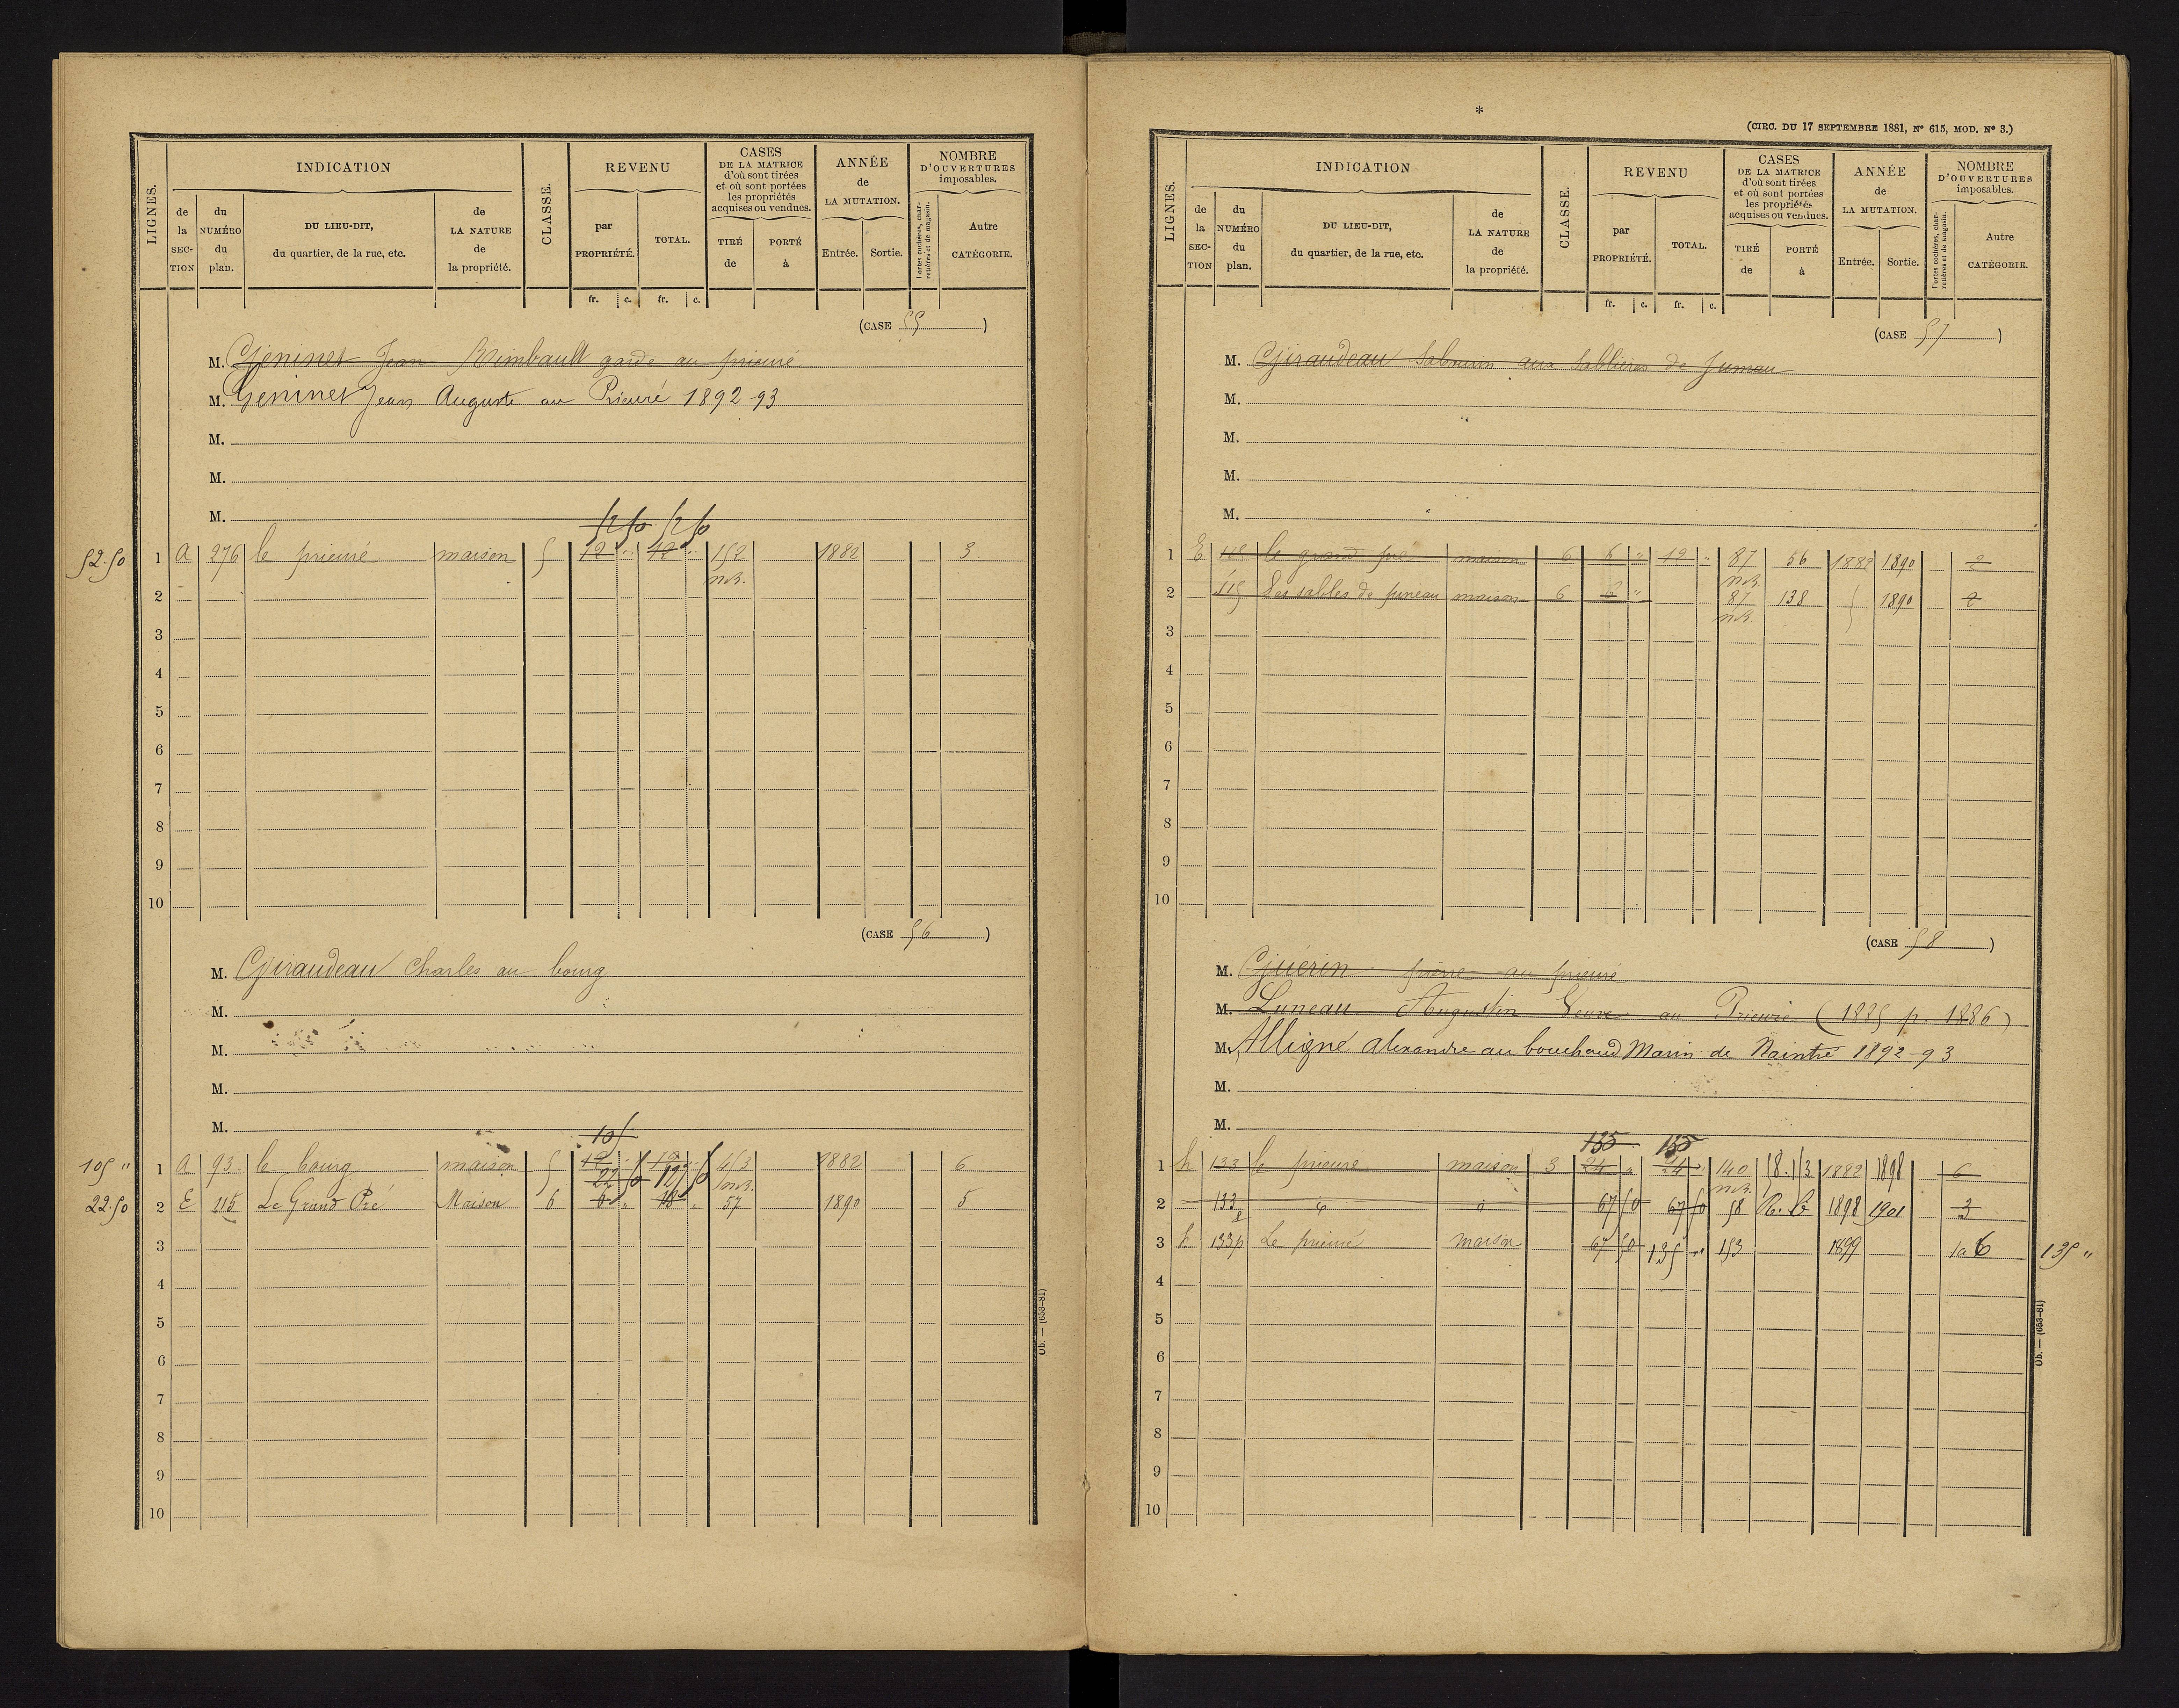 LIGNES.
INDICATION
de la SECTION
du NUMÉRO du plan.
DU LIEU-DIT, du quartier, de la rue, etc.
de LA NATURE de la propriété.
CLASSE.
REVENU
par PROPRIÉTÉ.
TOTAL.
CASES DE LA MATRICE d'où sont tirées et où sont portées les propriétés acquises ou vendues.
TIRÉ de
PORTÉ à
ANNÉE de LA MUTATION.
Entrée.
Sortie.
NOMBRE D'OUVERTURES imposables.
Portes cochères, charretières et de magasin.
Autre CATÉGORIE.
fr. c. fr. c.
(CASE 55)
M. Geninet Jean Rimbault garde au prieuré
M. Geninet Jean Auguste au Prieuré 1892-93
M.
M.
M.
52 50 52 50
52.50 1 A 276 le prieuré maison 5 12 " 12 " 152 1882 3
m.B.
2
3
4
5
6
7
8
9
10
(CASE 56)
M. Giraudeau Charles au bourg
M.
M.
M.
M.
105
105 " 1 A 93 le bourg maison 5 12 " 12 " 453 1882 6
22 50 127 50 m.B.
22.50 2 E 115 Le Grand Pré Maison 6 6 " 18 " 57 1890 5
3
4
5
6
7
8
9
10
Ob. — (653-81)
*
(CIRC. DU 17 SEPTEMBRE 1881, Nº 615, MOD. Nº 3.)
LIGNES.
INDICATION
de la SECTION
du NUMÉRO du plan.
DU LIEU-DIT, du quartier, de la rue, etc.
de LA NATURE de la propriété.
CLASSE.
REVENU
par PROPRIÉTÉ.
TOTAL.
CASES DE LA MATRICE d'où sont tirées et où sont portées les propriétés acquises ou vendues.
TIRÉ de
PORTÉ à
ANNÉE de LA MUTATION.
Entrée.
Sortie.
NOMBRE D'OUVERTURES imposables.
Portes cochères, charretières et de magasin.
Autre CATÉGORIE.
fr. c. fr. c.
(CASE 57)
M. Giraudeau Sabourin aux Sablières de Juneau
M.
M.
M.
M.
1 E 115 le grand pré maison 6 6 " 12 " 87 56 1882 1890 2
m.B.
2 115 Les sables de juneau maison 6 6 " 87 138 1890 2
m.B.
3
4
5
6
7
8
9
10
(CASE 58)
M. Guérin pierre au prieuré
M. Luneau Augustin Veuve au Prieuré (1885 p. 1886)
M. Alligné alexandre au bouchaud Marin de Naintré 1892-93
M.
M.
135 135
1 h 133 le prieuré maison 3 24 " 24 " 140 1882 1898 6
m.B.
2 133 d d 67 50 67 50 58 1898 1901 3
3 h 133p Le prieuré maison 67 50 135 " 153 1899 6 135 "
4
5
6
7
8
9
10
Ob. — (653-81)